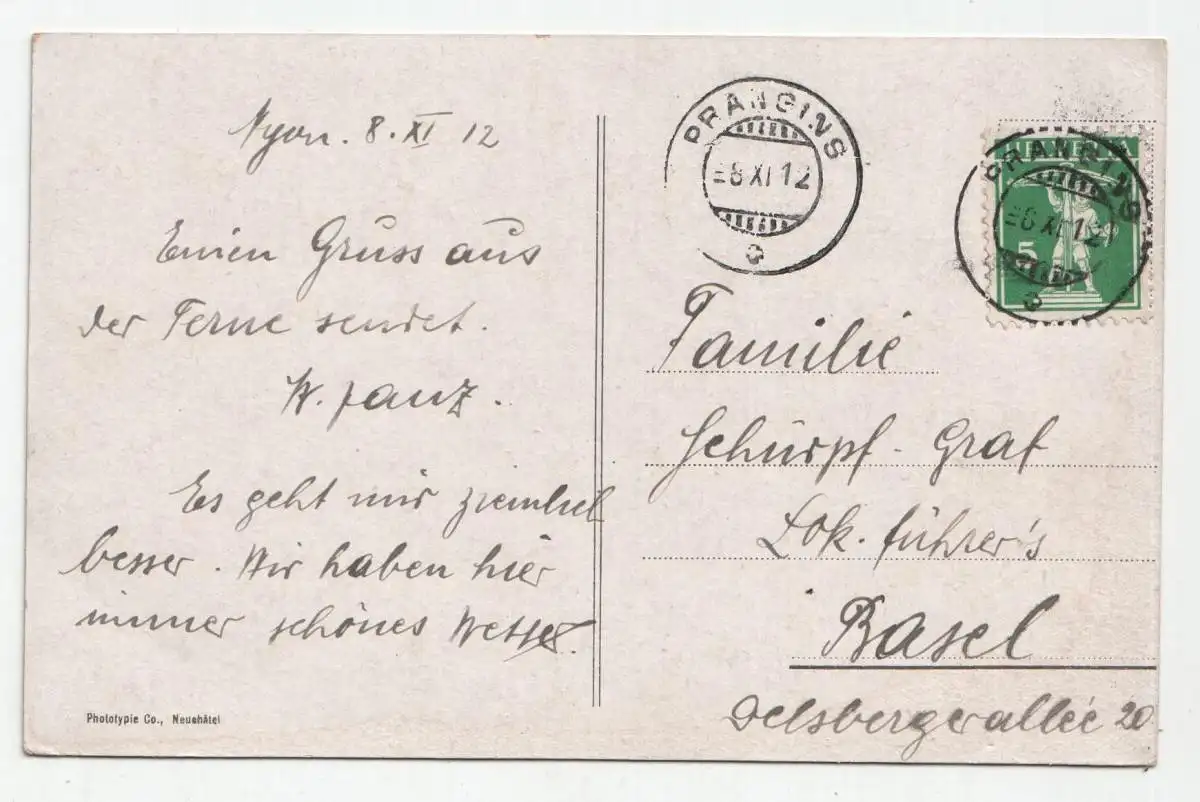 Nyon. 8. XI 12
Einen Gruss aus
der Ferne sendet.
W. Janz.
Es geht mir ziemlich
besser. Wir haben hier
immer schönes Wetter.
Phototypie Co., Neuchâtel
PRANGINS
-8 XI 12
HELVETIA
5
PRANGINS
-8 XI 12
Familie
Schürpf-Graf
Lok. führer's
Basel
Delsbergerallée 20